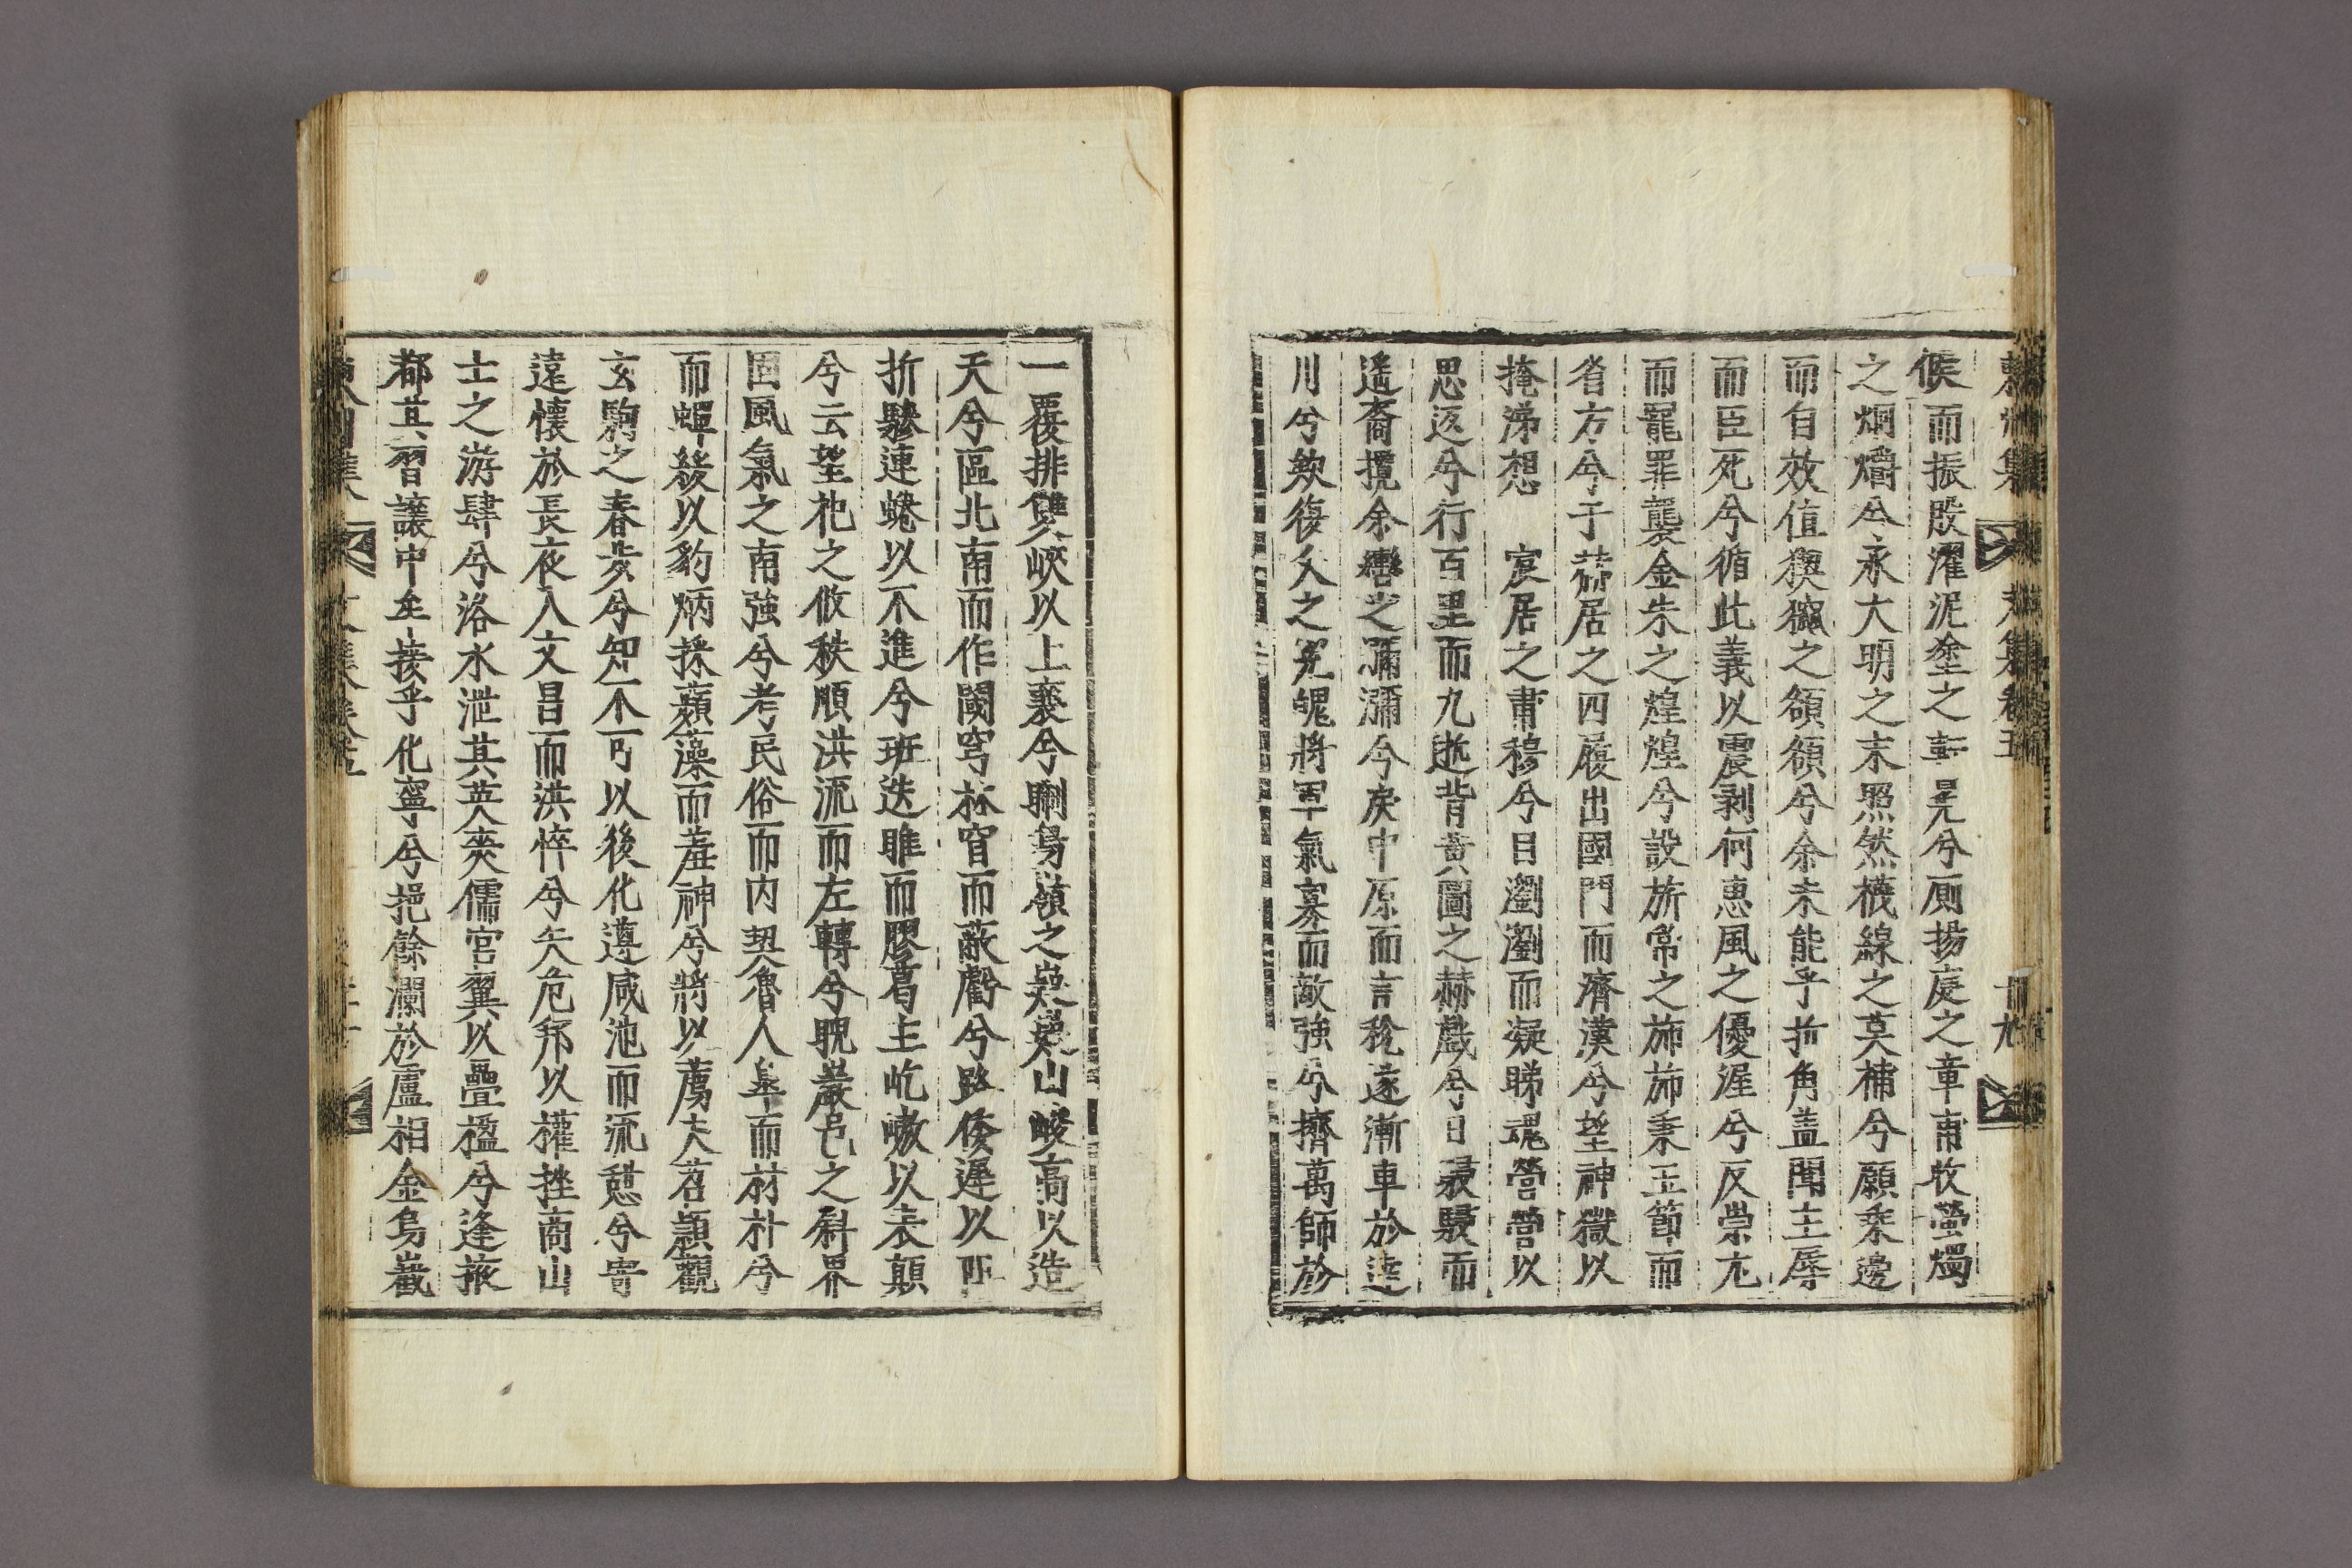 候而振股濯泥塗之軒冕兮廁揚庭之章甫收螢燭
之炯爝兮永大明之末照然襪線之莫補兮願乘邊
而自效值猰㺄之頷頷兮余未能乎折角蓋聞主辱
而臣死兮循此義以震剥何惠風之優渥兮反崇尢
而寵罪襲金朱之煌煌兮設旂常之斾斾秉玉節而
省方兮于蒞居之四履出國門而濟漢兮望神嶽以
掩涕想 宸居之肅穆兮目瀏瀏而凝睇魂營營以
思返兮行百里而九逝背黃圖之赫戲兮日駸駸而
遥裔攬余轡之濔濔兮戾中原而言稅遂漸車於㺔
川兮欸復久之冤魄將軍氣寡而敵強兮擠萬師於
一覆排雙峽以上褰兮睏鳥嶺之嶷嶷山峻高以造
天兮區北南而作閾穹林窅而蔽虧兮路倭遲以
折驂連蜷以不進兮班迭騅而膠葛主屹㠂以表顛
兮云望祀之攸秩順洪流而左轉兮睨巖邑之斜界
固風氣之南強兮考民俗而内契魯人皐而材朴兮
而蟬緌以豹炳採蘋藻而羞神兮將以薦夫苕穎觀
玄駒之春步兮知不可以後化遵咸池而流憩兮寄
遠懷於長夜入文昌而洪悴兮矢危邦以權挫商山
士之游肆兮洛水泄其英奭儒宫翼以疊楹兮逢掖
都其習讓中牟接乎化寧兮挹餘瀾於盧相金烏嶻